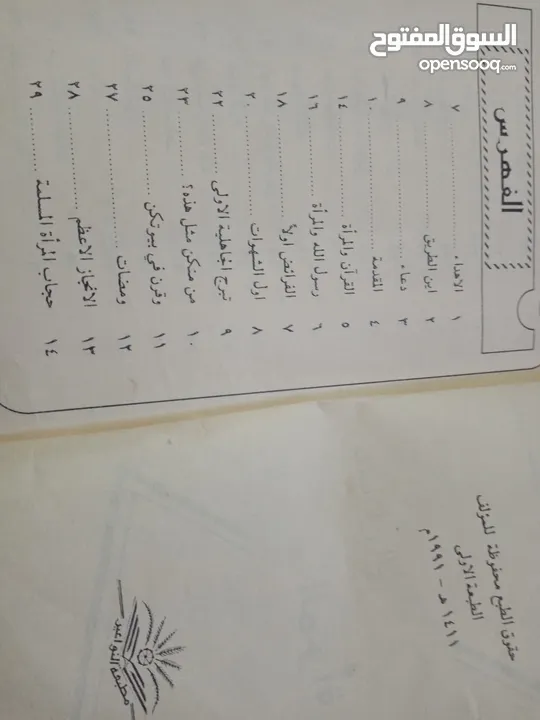 السوق المفتوح
opensooq.com
الفهرس
١ الاهداء ........ ٧
٢ ابن الطريق ........ ٨
٣ دعاء ........ ٩
٤ المقدمة ........ ١٠
٥ القرآن والمرأة ........ ١٤
٦ رسول الله والمرأة ........ ١٦
٧ الفرائض اولاً ........ ١٨
٨ اول الشهوات ........ ٢٠
٩ تبرج الجاهلية الاولى ........ ٢٢
١٠ من منكن مثل هذه؟ ........ ٢٣
١١ وقرن في بيوتكن ........ ٢٥
١٢ ومضات ........ ٢٧
١٣ الانجاز الاعظم ........ ٢٨
١٤ حجاب المرأة المسلمة ........ ٢٩
حقوق الطبع محفوظة للمؤلف
الطبعة الاولى
١٤١١ هـ - ١٩٩١م
مطبعة النواعير